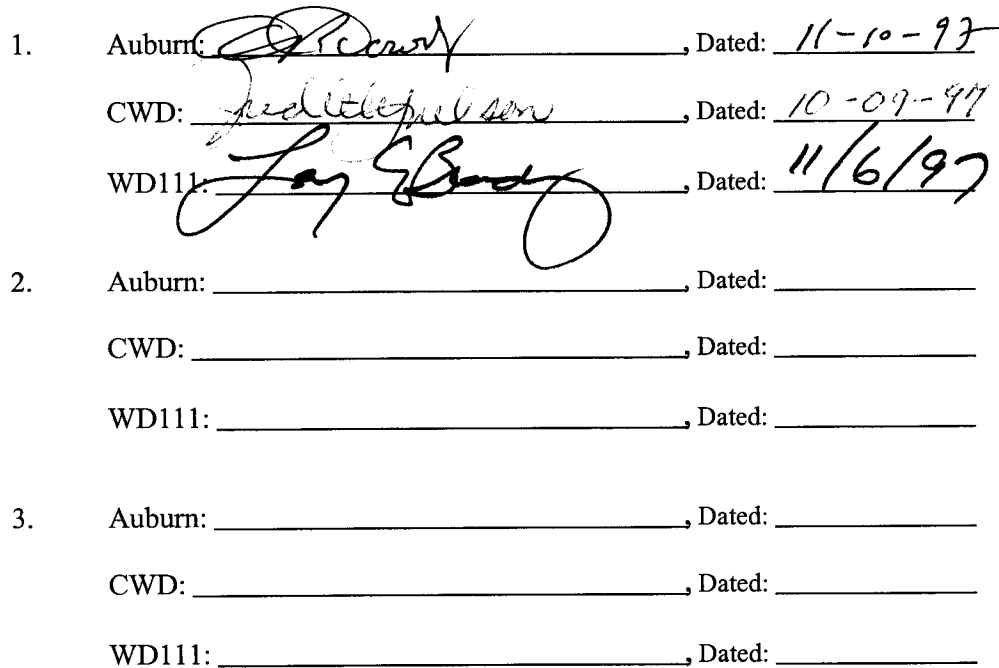 1. Auburn: , Dated: 11-10-97
CWD: Judith Nelson, Dated: 10-09-97
WD111: Brady, Dated: 11/6/97
2. Auburn: , Dated:
CWD: , Dated:
WD111: , Dated:
3. Auburn: , Dated:
CWD: , Dated:
WD111: , Dated: